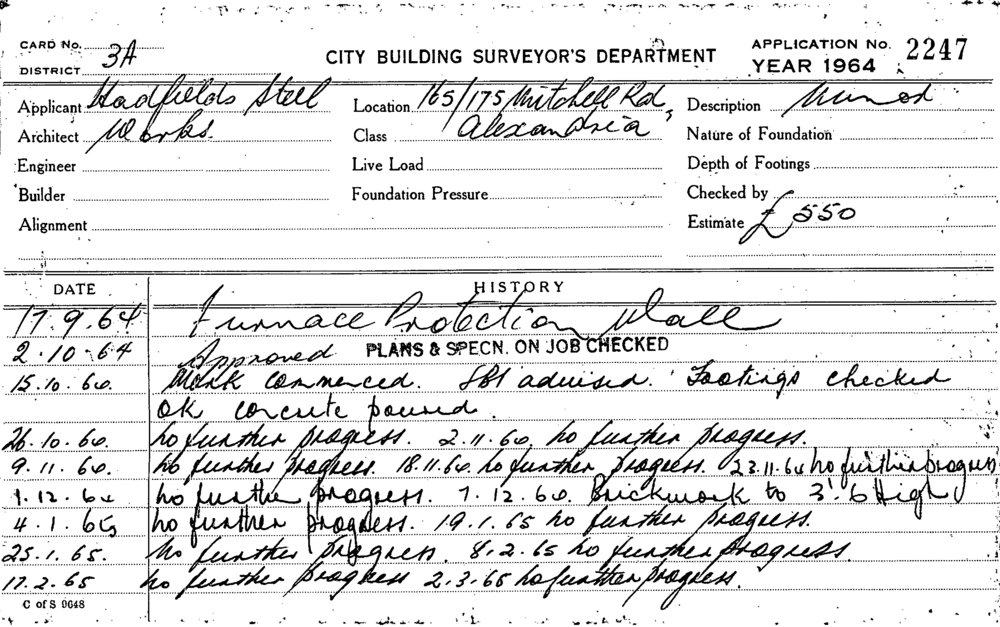 CARD No. 3A
DISTRICT
CITY BUILDING SURVEYOR'S DEPARTMENT
APPLICATION No. 2247
YEAR 1964
Applicant Hadfields Steel Location 165/175 Mitchell Rd, Description Minor
Architect Works. Class Alexandria Nature of Foundation
Engineer Live Load Depth of Footings
Builder Foundation Pressure Checked by
Alignment Estimate £550
DATE HISTORY
17.9.64 Furnace Protection Wall
2.10.64 Approved PLANS & SPECN. ON JOB CHECKED
15.10.64. Work commenced. advised. Footings checked
OK concrete poured.
26.10.64. no further progress. 2.11.64. no further progress.
9.11.64. no further progress. 18.11.64 no further progress. 23.11.64 no further progress
1.12.64 no further progress. 7.12.64. Brickwork to 3'.6 High
4.1.65 no further progress. 19.1.65 no further progress.
25.1.65. no further progress. 8.2.65 no further progress.
17.2.65 no further progress 2.3.65 no further progress.
C of S 9648